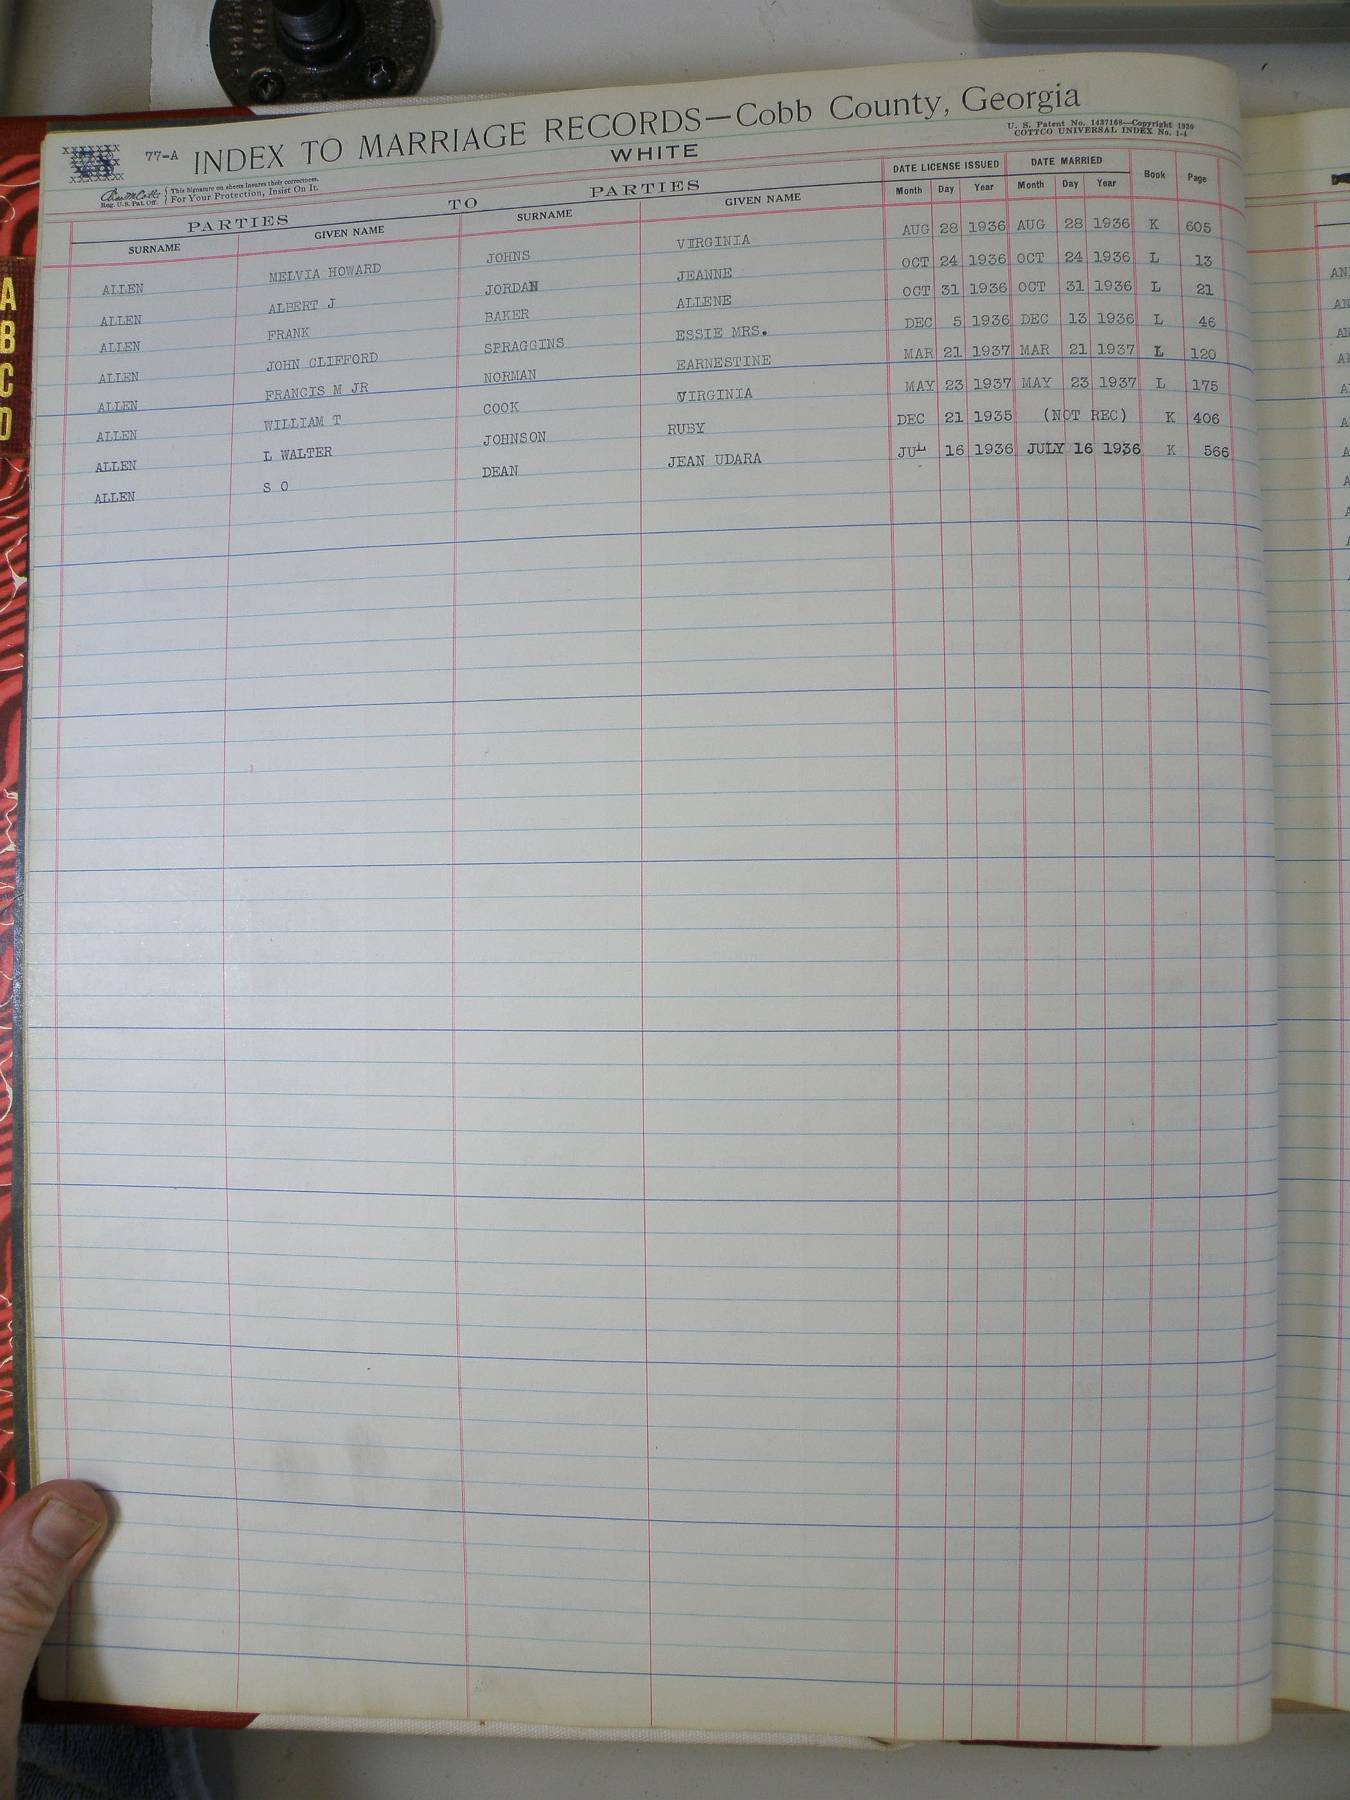 77-A INDEX TO MARRIAGE RECORDS—Cobb County, Georgia
WHITE
U. S. Patent No. 1437168—Copyright 1920
COTTCO UNIVERSAL INDEX No. 1-4
Reg. U.S. Pat. Off. This Signature on sheets insures their correctness.
For Your Protection, Insist On It.
PARTIES TO PARTIES DATE LICENSE ISSUED DATE MARRIED Book Page
SURNAME GIVEN NAME SURNAME GIVEN NAME Month Day Year Month Day Year
ALLEN MELVIA HOWARD JOHNS VIRGINIA AUG 28 1936 AUG 28 1936 K 605
ALLEN ALBERT J JORDAN JEANNE OCT 24 1936 OCT 24 1936 L 13
ALLEN FRANK BAKER ALLENE OCT 31 1936 OCT 31 1936 L 21
ALLEN JOHN CLIFFORD SPRAGGINS ESSIE MRS. DEC 5 1936 DEC 13 1936 L 46
ALLEN FRANCIS M JR NORMAN EARNESTINE MAR 21 1937 MAR 21 1937 L 120
ALLEN WILLIAM T COOK VIRGINIA MAY 23 1937 MAY 23 1937 L 175
ALLEN L WALTER JOHNSON RUBY DEC 21 1935 (NOT REC) K 406
ALLEN S O DEAN JEAN UDARA JUL 16 1936 JULY 16 1936 K 566
A
B
C
D